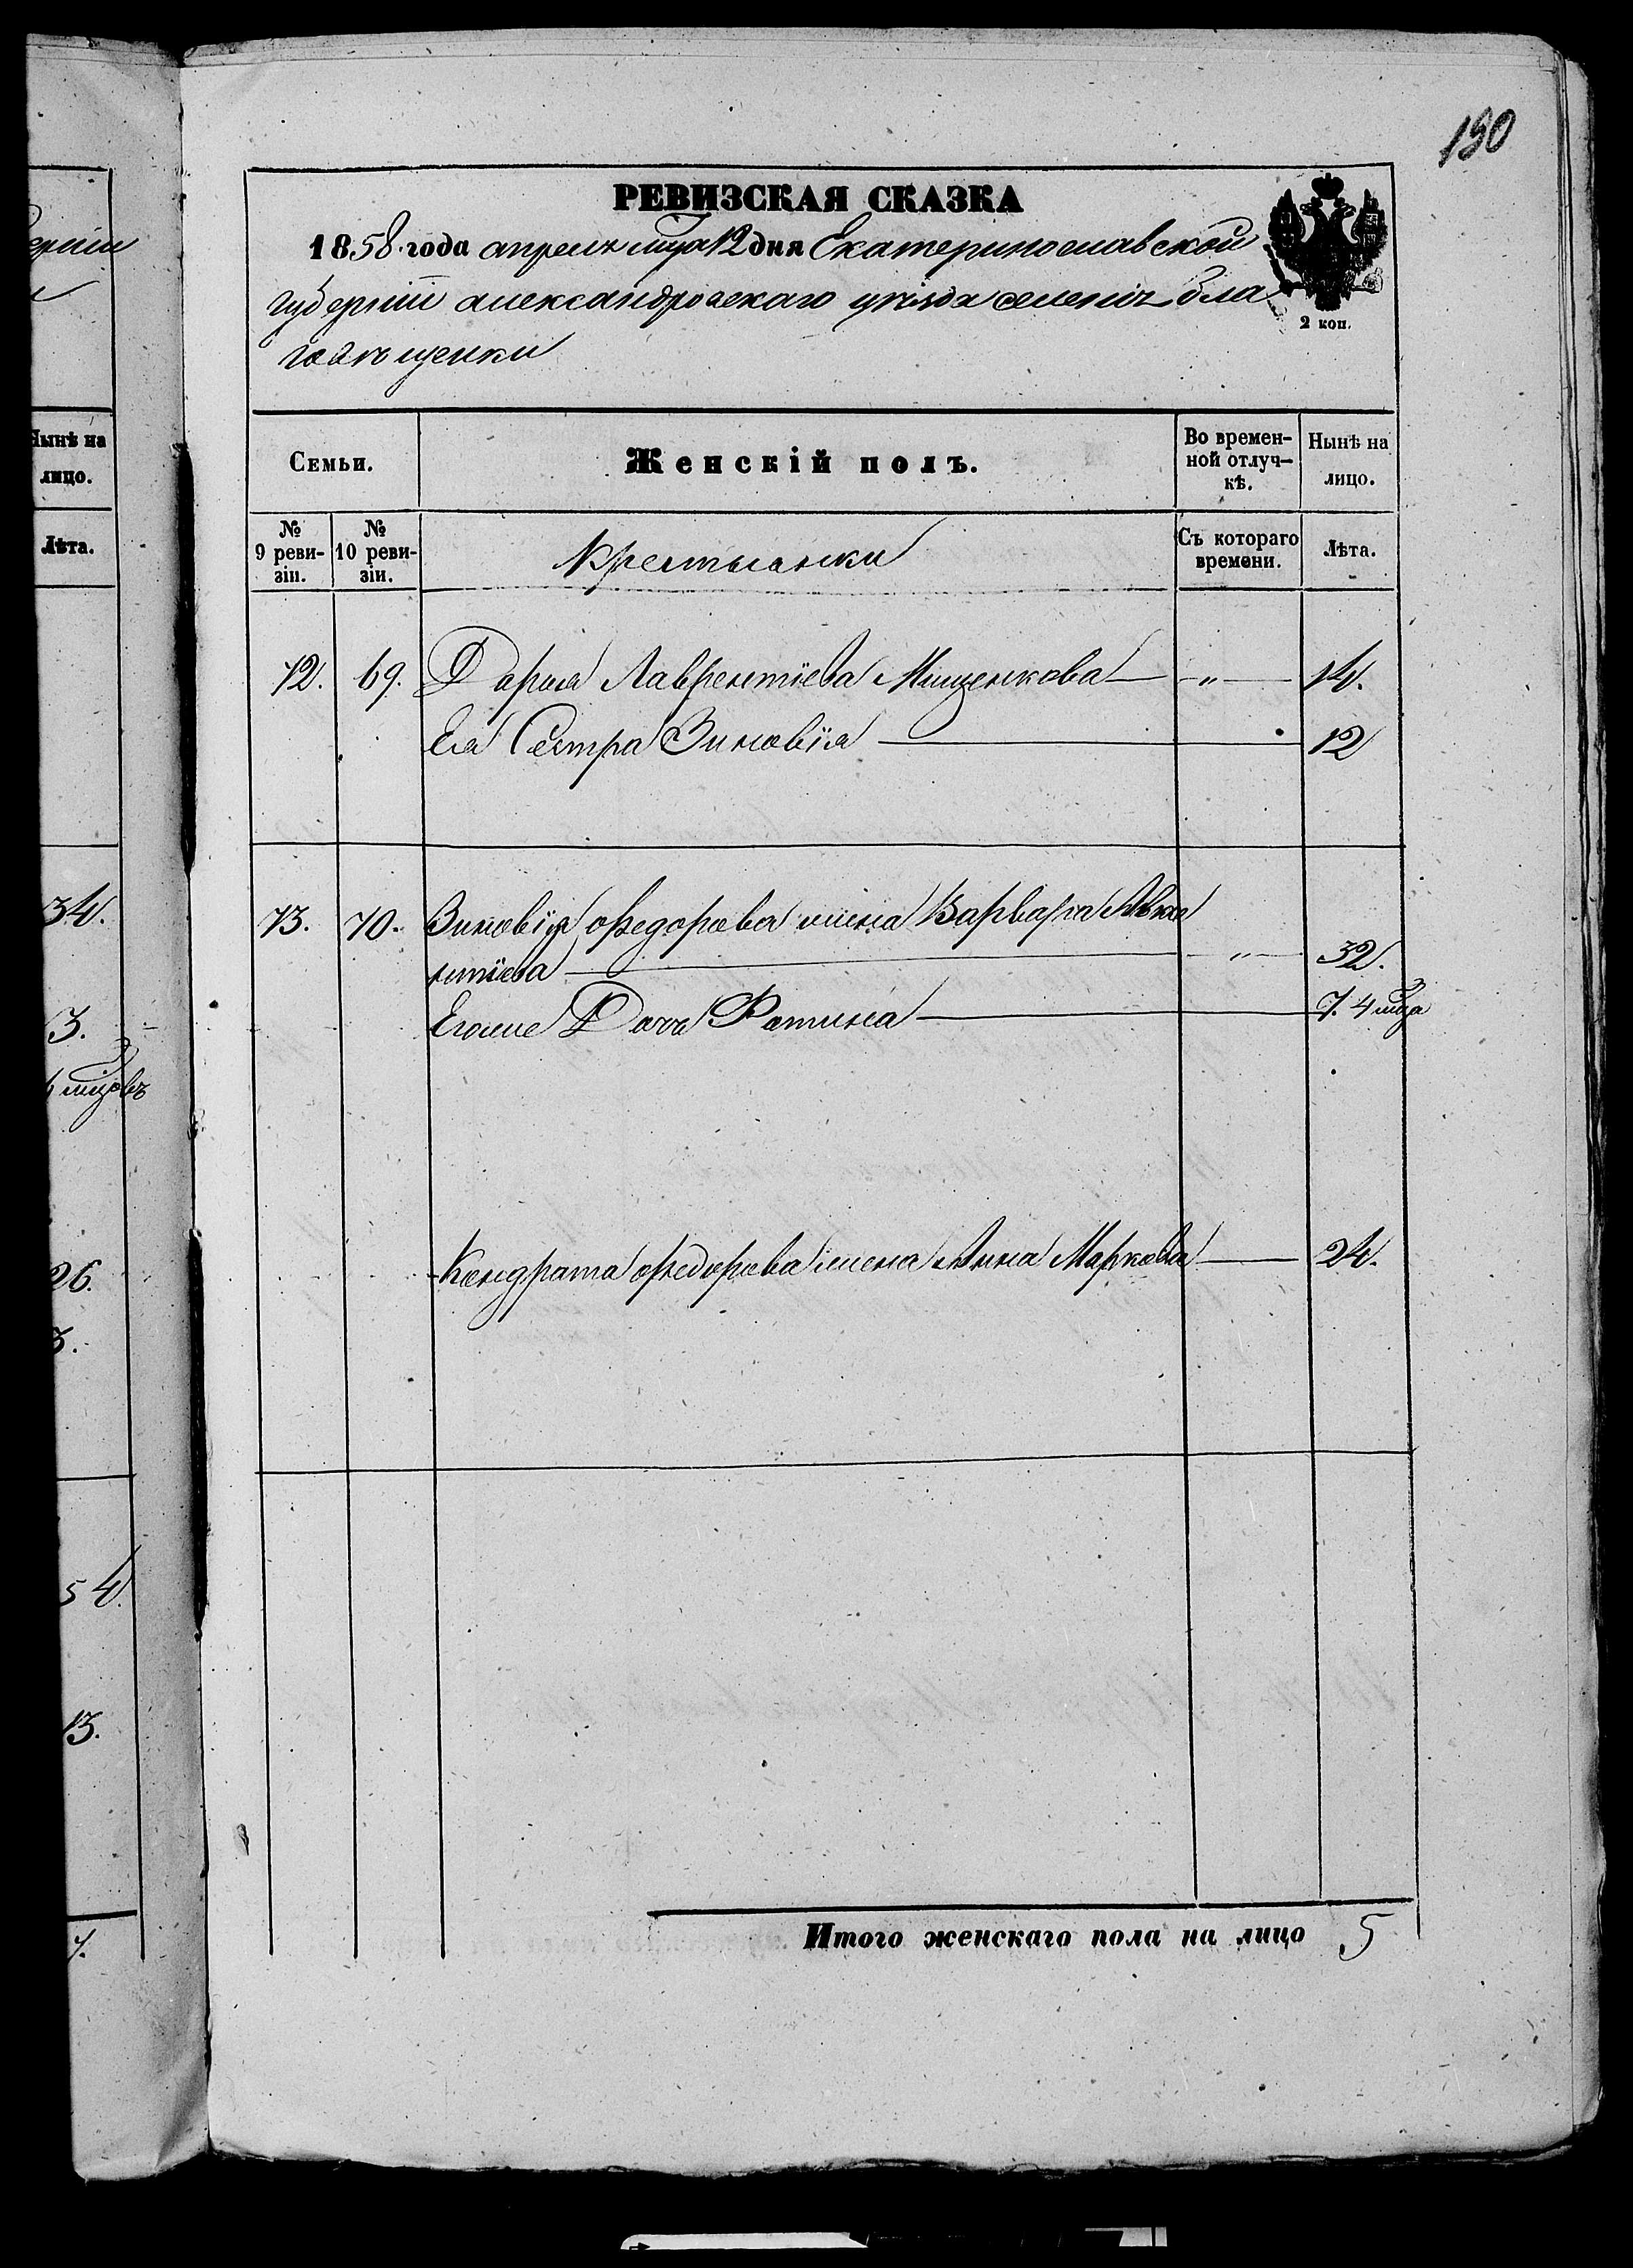 190
РЕВИЗСКАЯ СКАЗКА
1858 года апреля мца 12 дня Екатеринославской
губерніи александровскаго уѣзда селенія бла
2 коп.
говѣщенки
Семьи.
Женскій полъ.
Во времен-
ной отлуч-
кѣ.
Нынѣ на
лицо.
№
9 реви-
зіи.
№
10 реви-
зіи.
Крестьянки
Съ котораго
времени.
Лѣта.
12. 69. Дарья Лаврентіева Мищенкова — „ — 14.
Ея Сестра Зиновія — 12
13. 70. Зиновія Федорова жена Варвара
нтіева — „ — 32.
Его дочь Фотина — 7. 4 мца
Кондрата Федорова жена Анна Маркова — 24.
Итого женскаго пола на лицо 5
Нынѣ на
лицо.
Лѣта.
34.
3.
6 мцовъ
26.
3.
54.
13.
7.